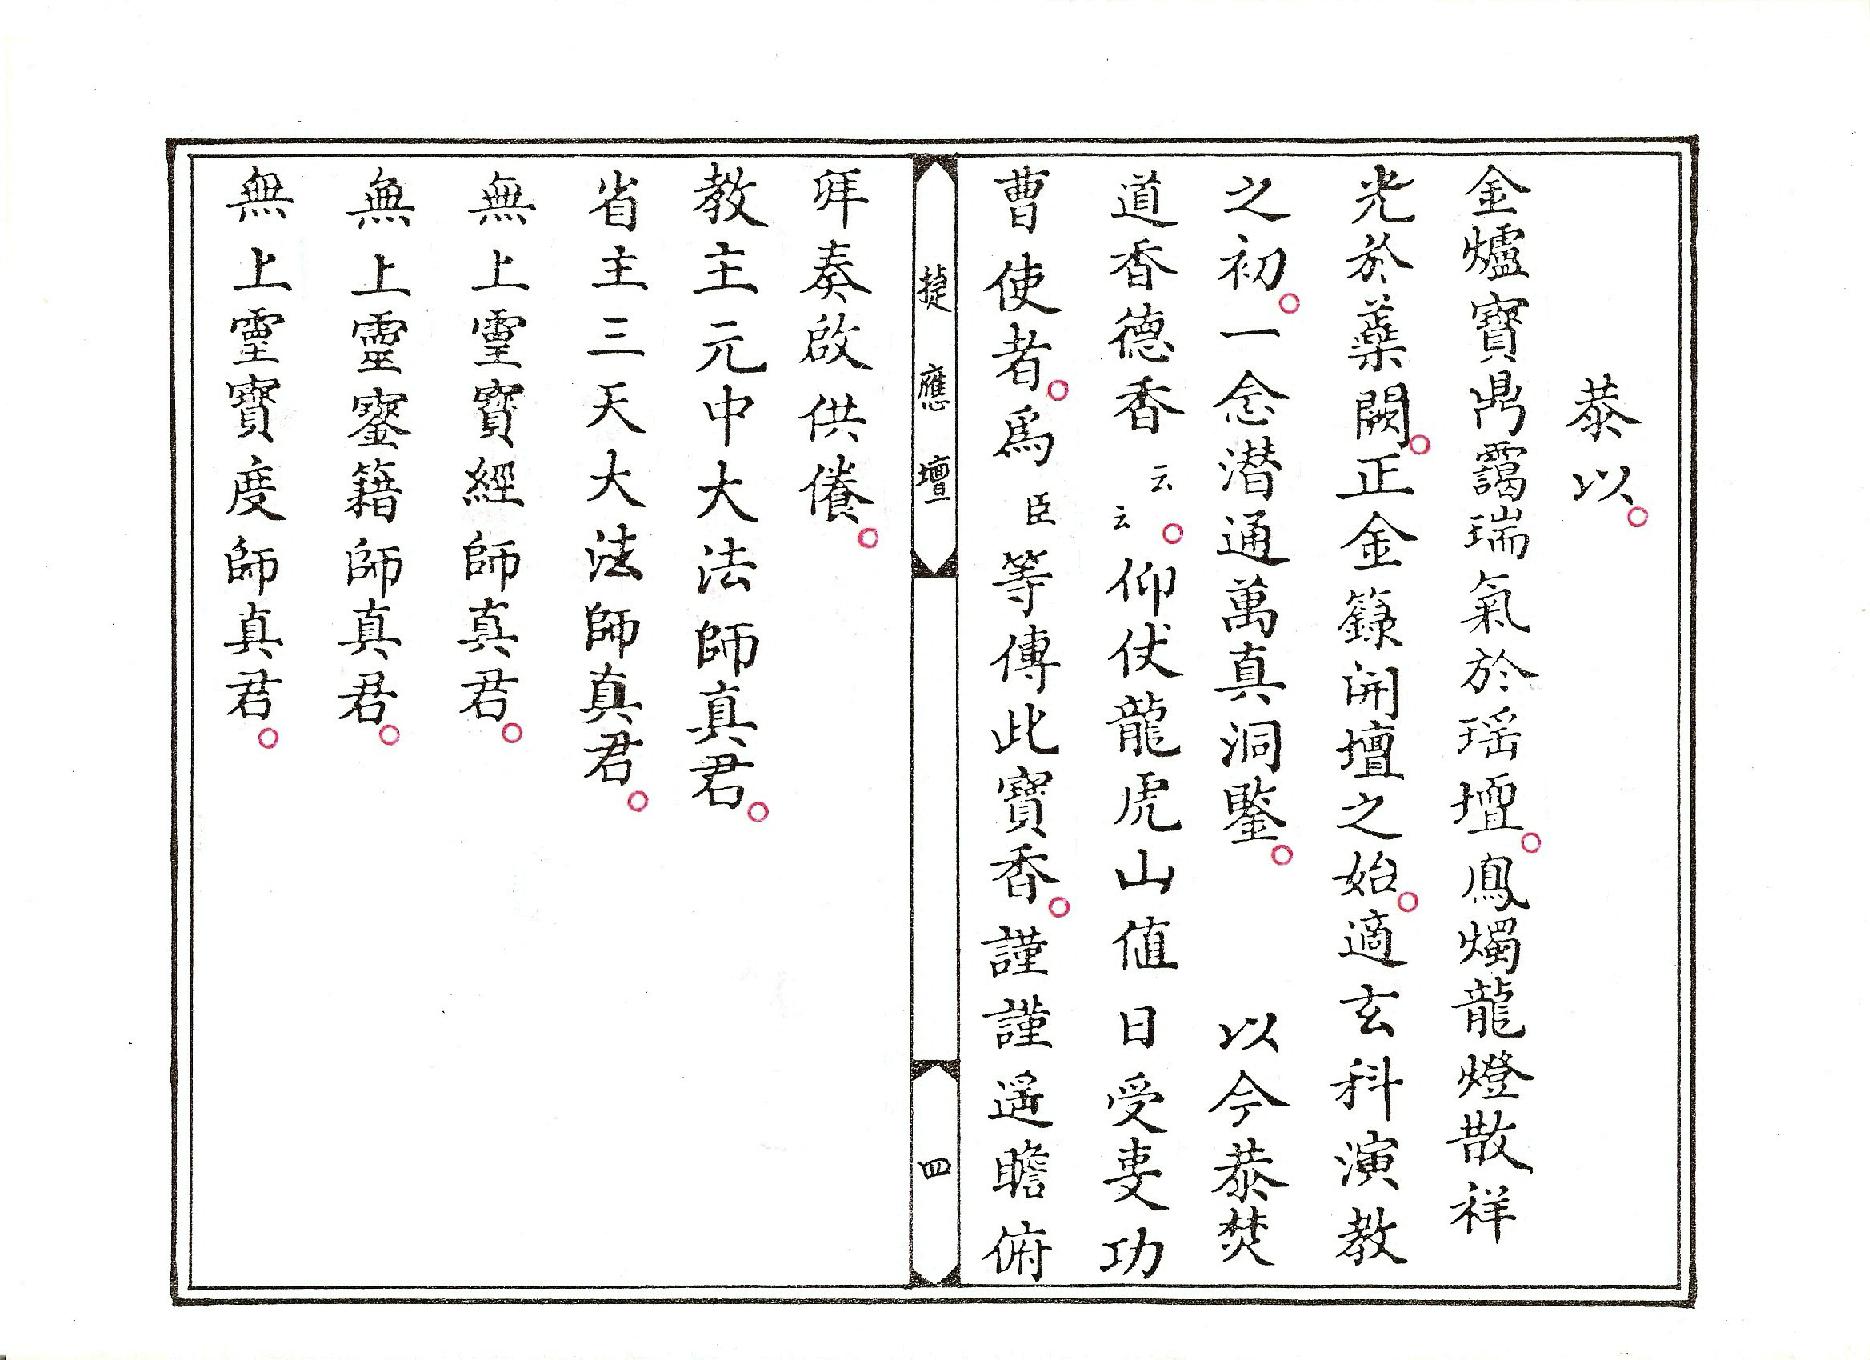 恭以。
金爐寶鼎靄瑞氣於瑶壇。鳳燭龍燈散祥
光於蘂闕。正金籙開壇之始。適玄科演教
之初。一念潛通萬真洞鑒。　以今恭焚
道香德香云云。仰伏龍虎山值日受事功
曹使者。爲臣等傳此寶香。謹謹遥瞻俯
捷應壇
四
拜奏啟供養。
教主元中大法師真君。
省主三天大法師真君。
無上靈寶經師真君。
無上靈寶籍師真君。
無上靈寶度師真君。